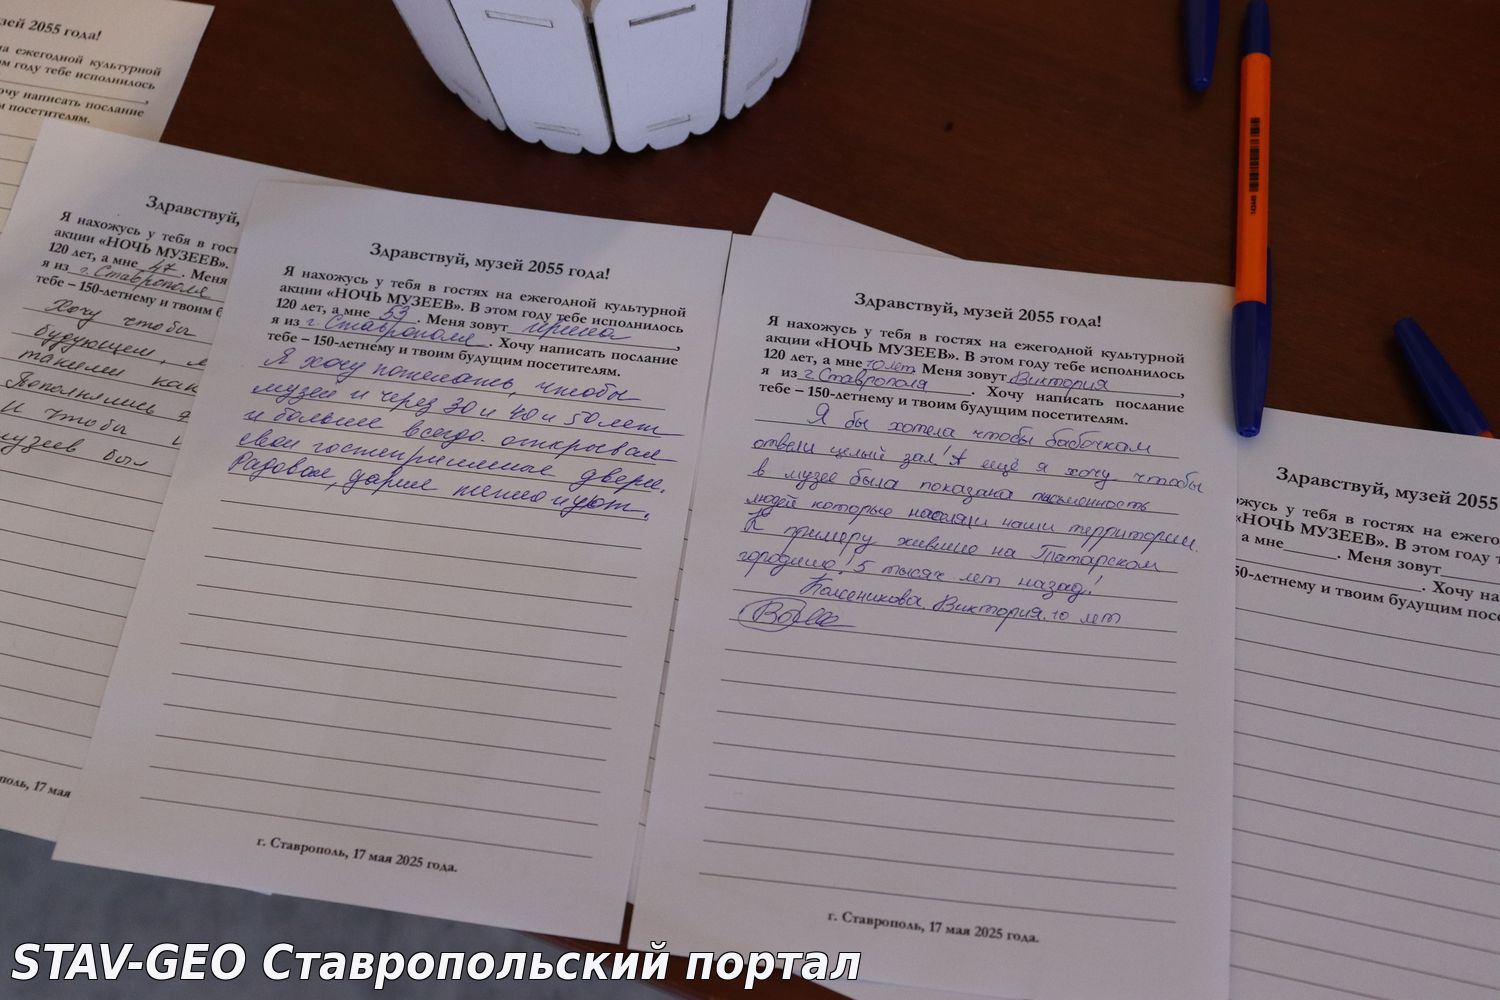 зей 2055 года!
на ежегодной культурной
ом году тебе исполнилось
очу написать послание
м посетителям.
Здравствуй,
Я нахожусь у тебя в гост
акции «НОЧЬ МУЗЕЕВ».
120 лет, а мне 47. Меня
я из г. Ставрополя
тебе – 150-летнему и твоим б
Хочу чтобы
будующем,
такими как
Пополнялись
И чтобы
музеев был
поль, 17 мая
Здравствуй, музей 2055 года!
Я нахожусь у тебя в гостях на ежегодной культурной
акции «НОЧЬ МУЗЕЕВ». В этом году тебе исполнилось
120 лет, а мне 53. Меня зовут Ирина,
я из г. Ставрополя. Хочу написать послание
тебе – 150-летнему и твоим будущим посетителям.
Я хочу пожелать, чтобы
музей и через 30 и 40 и 50 лет
и больше всегда открывал
свои гостеприимные двери.
Радовал, дарил тепло и уют.
г. Ставрополь, 17 мая 2025 года.
Здравствуй, музей 2055 года!
Я нахожусь у тебя в гостях на ежегодной культурной
акции «НОЧЬ МУЗЕЕВ». В этом году тебе исполнилось
120 лет, а мне 10 лет. Меня зовут Виктория,
я из г Ставрополя. Хочу написать послание
тебе – 150-летнему и твоим будущим посетителям.
Я бы хотела чтобы бабочкам
отвели целый зал! А ещё я хочу чтобы
в музее была показана письменность
людей которые населяли наши территории.
К примеру жившие на Татарском
городище! 5 тысяч лет назад!
Виктория. 10 лет
г. Ставрополь, 17 мая 2025 года.
Здравствуй, музей 2055
хожусь у тебя в гостях на ежего
«НОЧЬ МУЗЕЕВ». В этом году т
а мне. Меня зовут
. Хочу на
50-летнему и твоим будущим посе
STAV-GEO Ставропольский портал